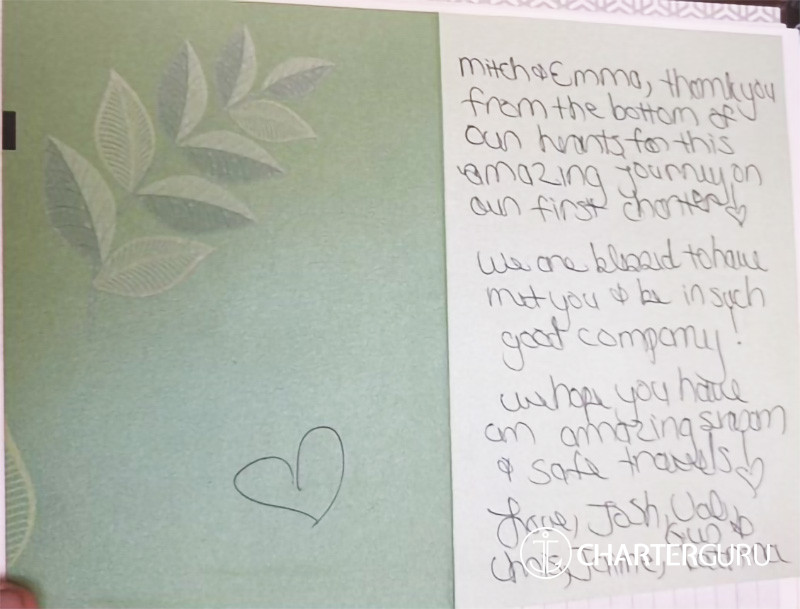 mitch & Emma, thank you
from the bottom of
our hearts for this
amazing journey on
our first charter!
we are blessed to have
met you & be in such
good company!
we hope you have
an amazing season
& safe travels!
Love, Josh, Val,
Chris,
CHARTERGURU